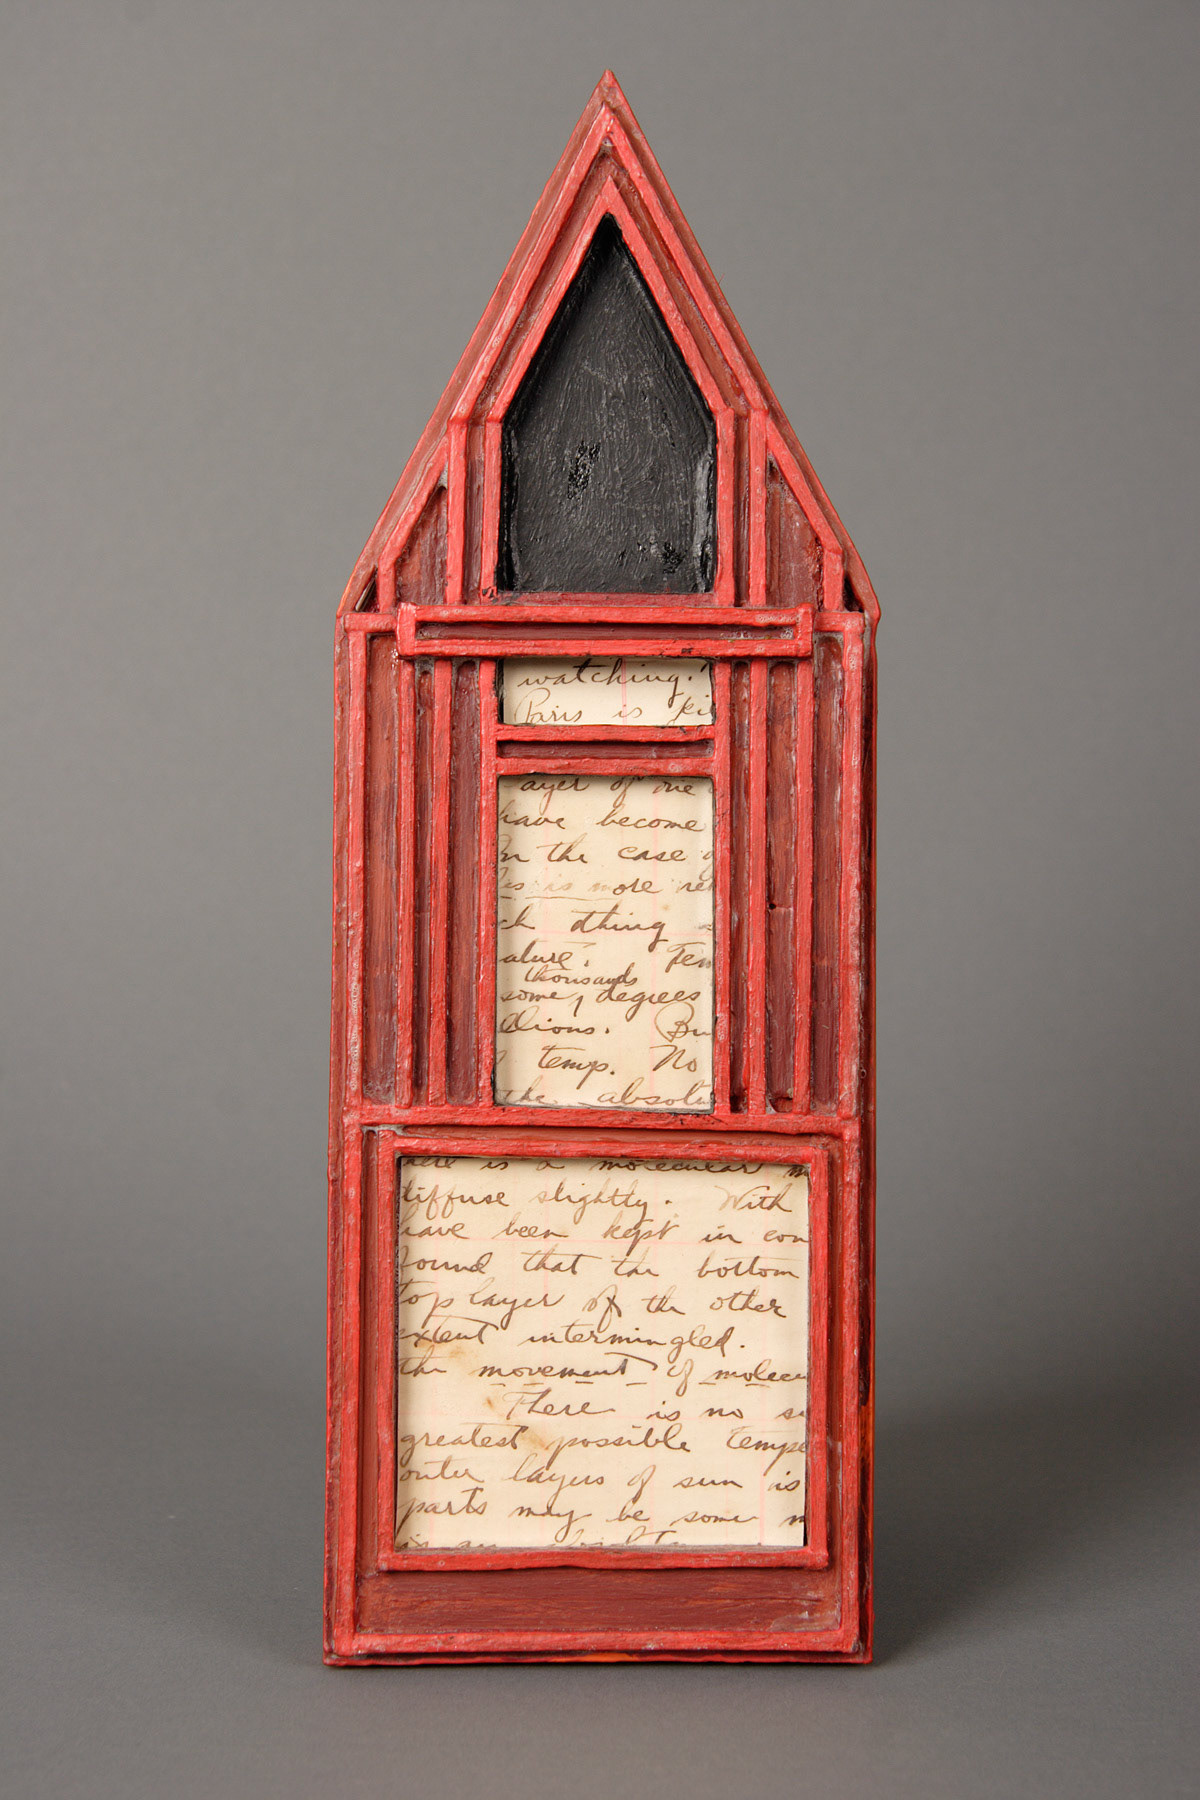 watching.
Paris is
ayer of one
have become
In the case
is more
ch thing
ature. Tem
thousands
some, degrees
llions. Bu
temp. No
the absolu
here is a molecular m
diffuse slightly. With
have been kept in con
found that the bottom
top layer of the other
extent intermingled.
the movement of molecu
There is no su
greatest possible tempe
outer layers of sun is
parts may be some m